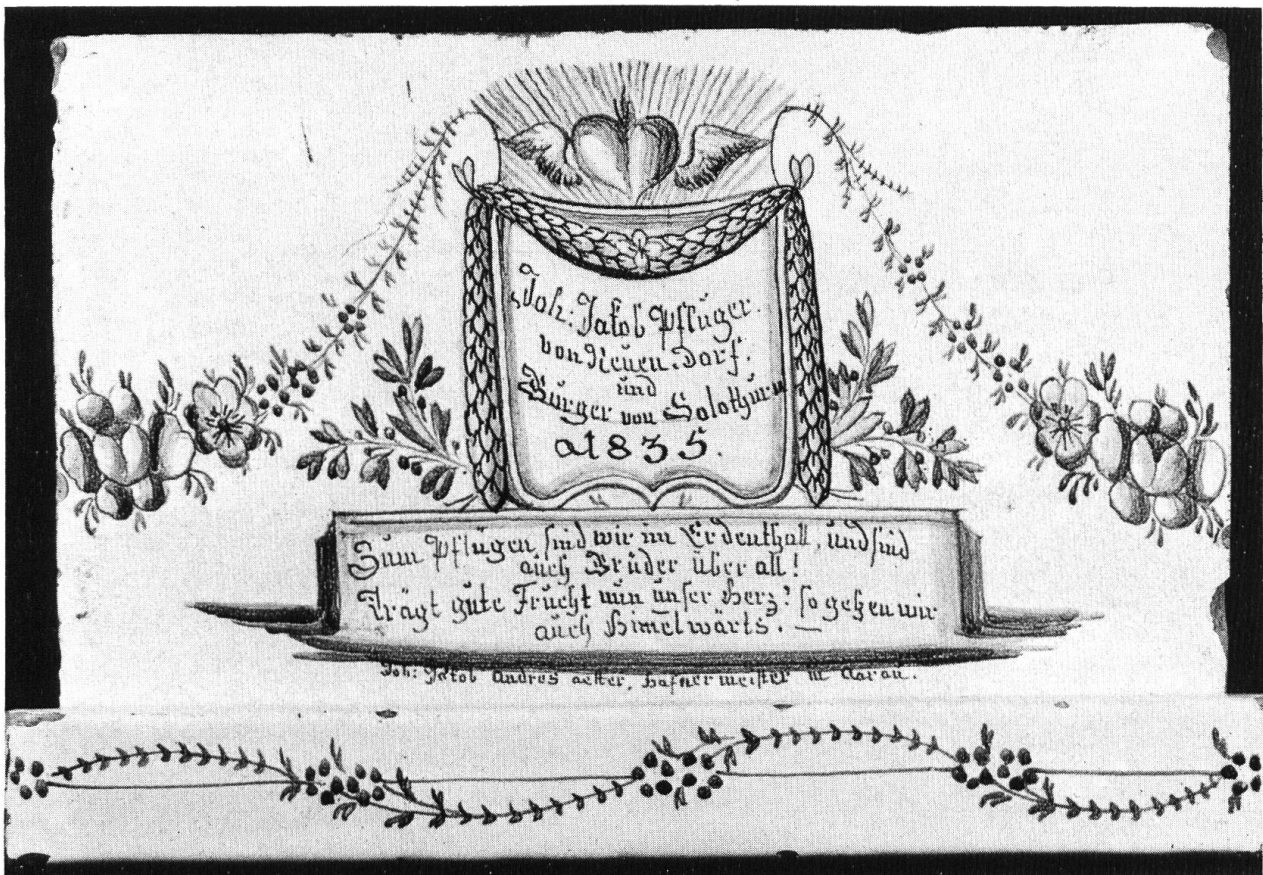 Joh: Jakob Pflüger.
von Neuen-Dorf.
und
Bürger von Solothurn
a1835.
Zum Pflügen sind wir im Erdenthall, und sind
auch Brüder über all!
Trägt gute Frucht nun unser Herz! so gehen wir
auch Himelwärts. —
Joh: Jakob Andres aelter, Hafnermeister in Aarau.